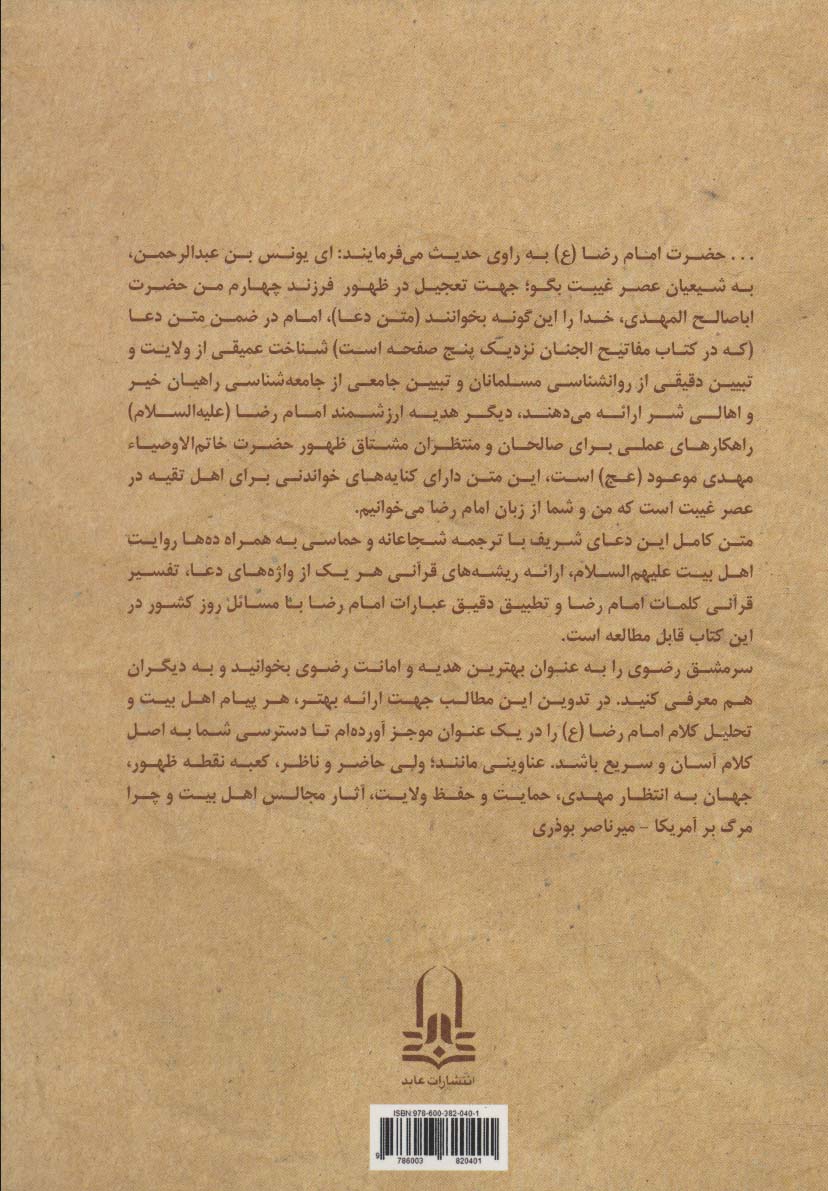 ... حضرت امام رضا (ع) به راوی حدیث می‌فرمایند: ای یونس بن عبدالرحمن،
به شیعیان عصر غیبت بگو؛ جهت تعجیل در ظهور فرزند چهارم من حضرت
اباصالح المهدی، خدا را این‌گونه بخوانند (متن دعا)، امام در ضمن متن دعا
(که در کتاب مفاتیح الجنان نزدیک پنج صفحه است) شناخت عمیقی از ولایت و
تبیین دقیقی از روانشناسی مسلمانان و تبیین جامعی از جامعه‌شناسی راهیان خیر
و اهالی شر ارائه می‌دهند، دیگر هدیه ارزشمند امام رضا (علیه‌السلام)
راهکارهای عملی برای صالحان و منتظران مشتاق ظهور حضرت خاتم‌الاوصیاء
مهدی موعود (عج) است، این متن دارای کنایه‌های خواندنی برای اهل تقیه در
عصر غیبت است که من و شما از زبان امام رضا می‌خوانیم.
متن کامل این دعای شریف با ترجمه شجاعانه و حماسی به همراه ده‌ها روایت
اهل بیت علیهم‌السلام، ارائه ریشه‌های قرآنی هر یک از واژه‌های دعا، تفسیر
قرآنی کلمات امام رضا و تطبیق دقیق عبارات امام رضا با مسائل روز کشور در
این کتاب قابل مطالعه است.
سرمشق رضوی را به عنوان بهترین هدیه و امانت رضوی بخوانید و به دیگران
هم معرفی کنید. در تدوین این مطالب جهت ارائه بهتر، هر پیام اهل بیت و
تحلیل کلام امام رضا (ع) را در یک عنوان موجز آورده‌ام تا دسترسی شما به اصل
کلام آسان و سریع باشد. عناوینی مانند؛ ولی حاضر و ناظر، کعبه نقطه ظهور،
جهان به انتظار مهدی، حمایت و حفظ ولایت، آثار مجالس اهل بیت و چرا
مرگ بر آمریکا - میرناصر بوذری
انتشارات عابد
ISBN:978-600-382-040-1
9 786003 820401